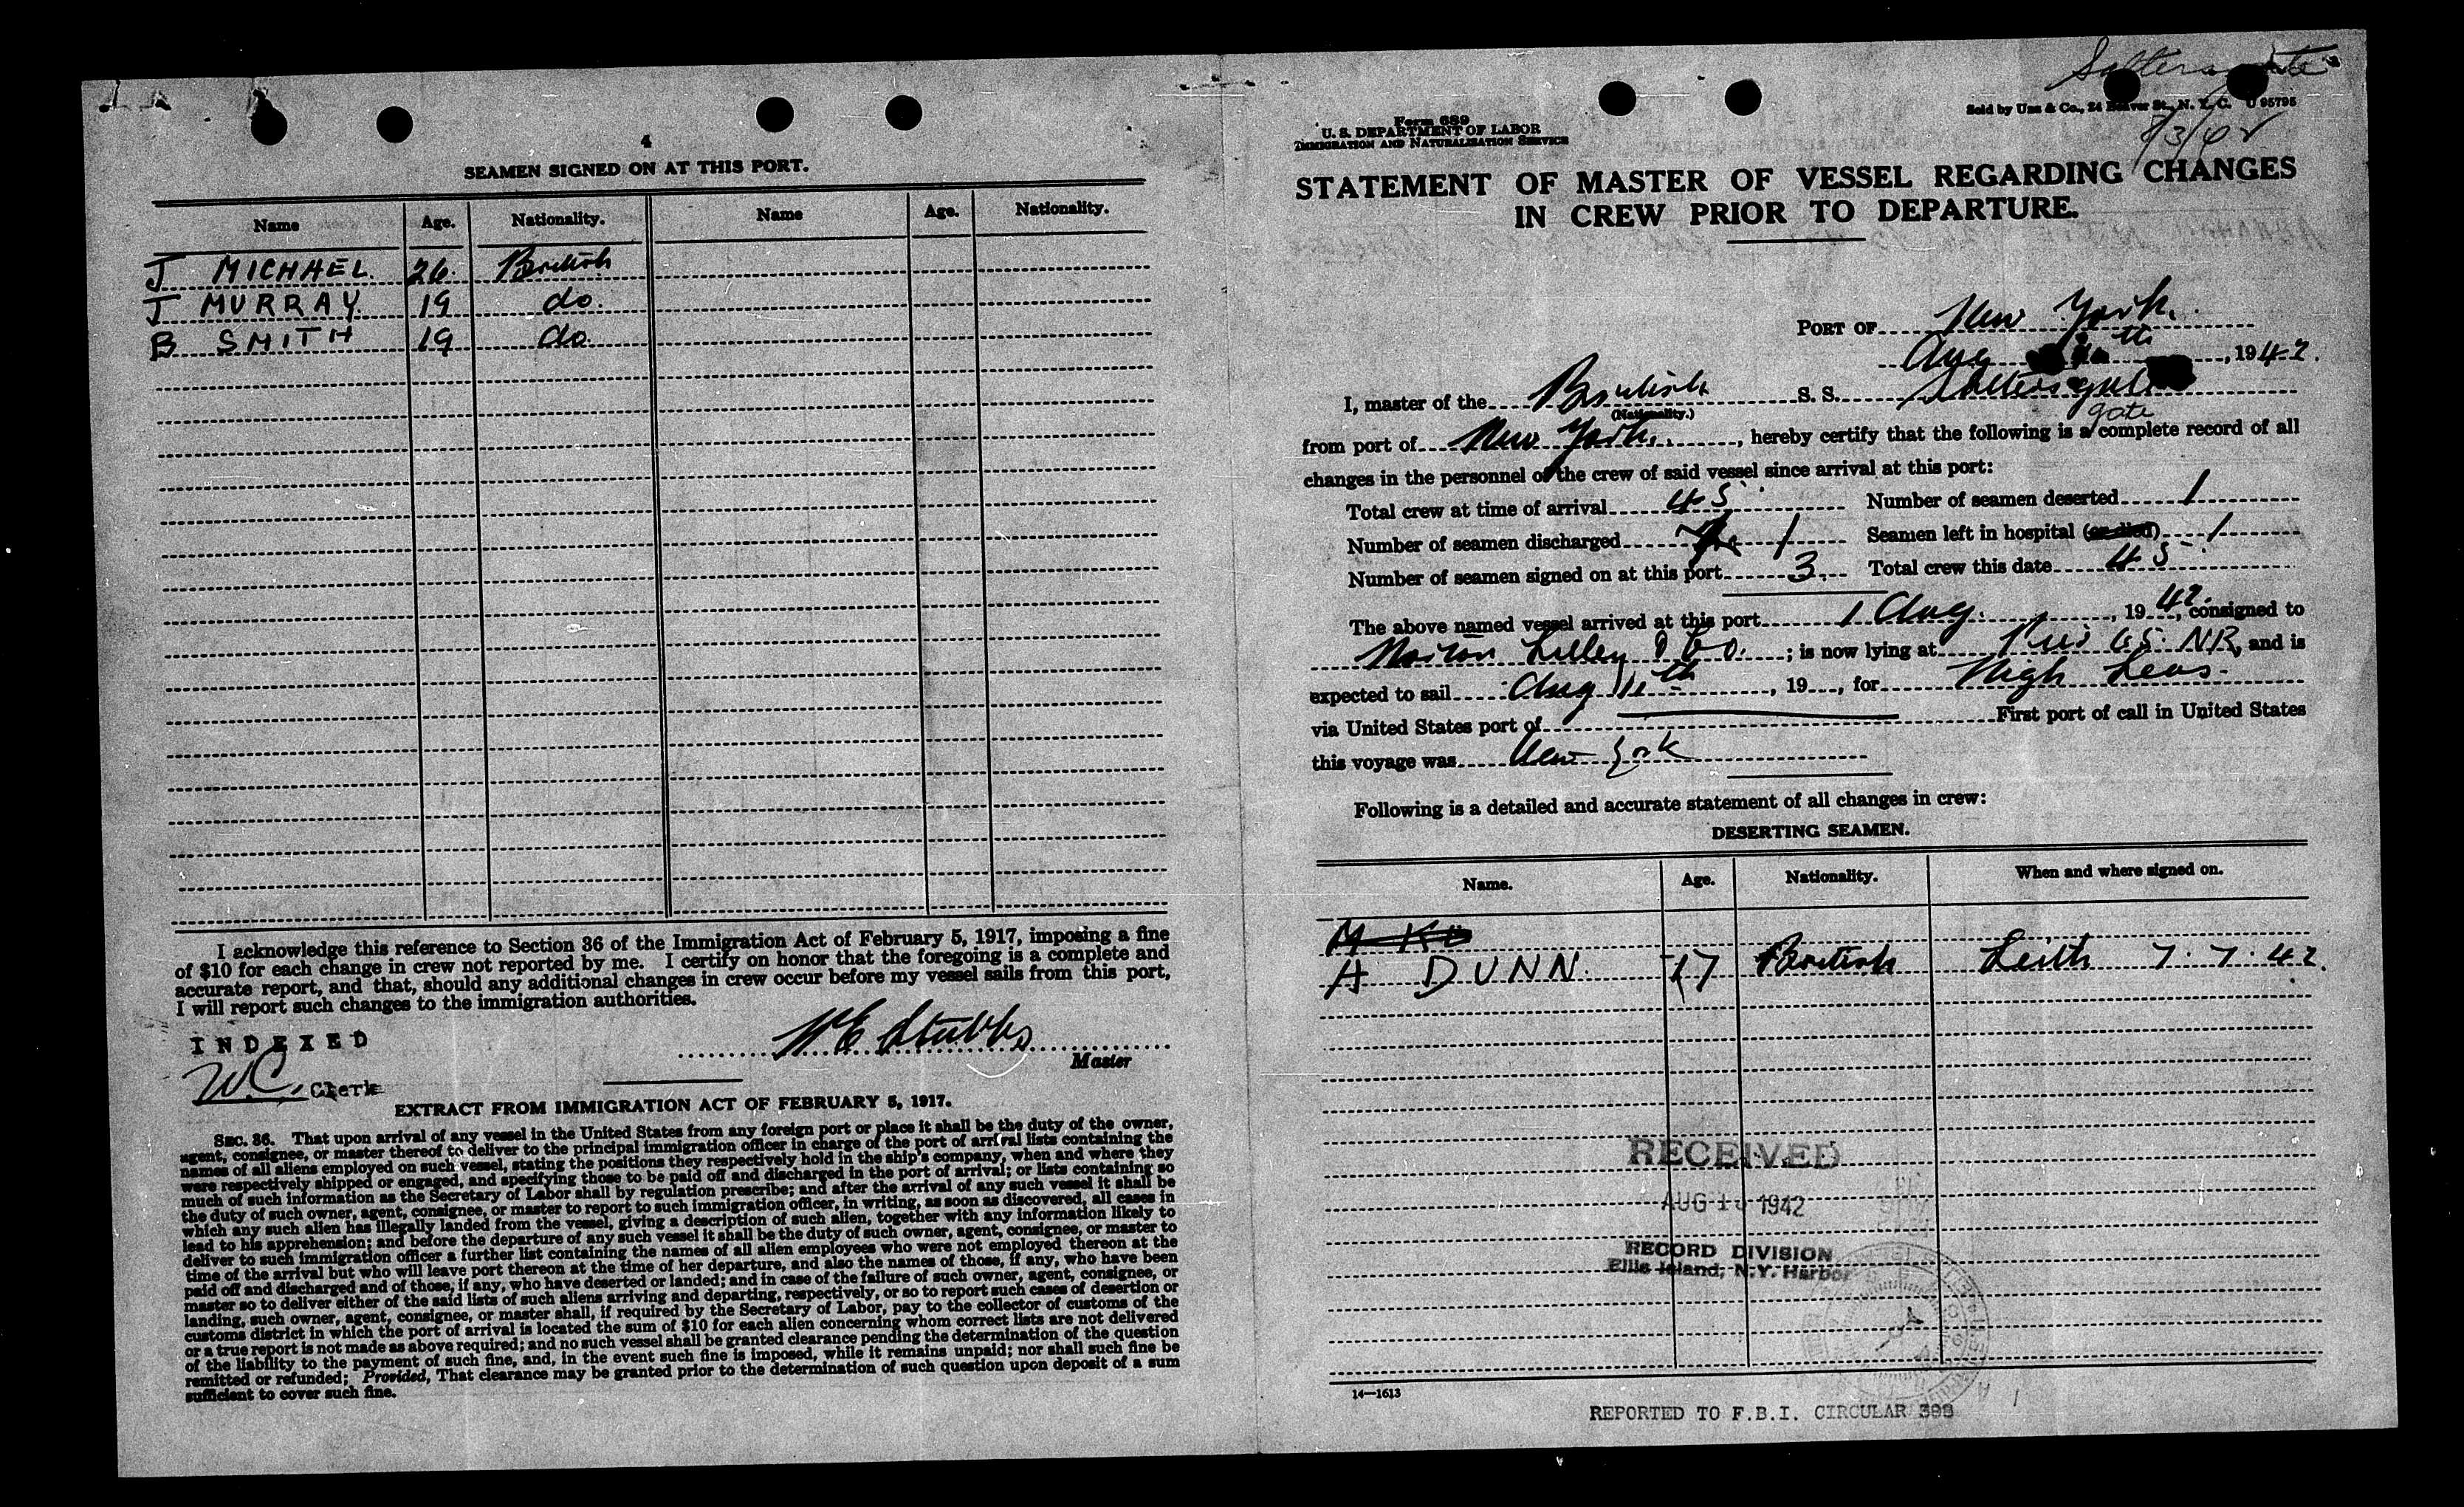 4
SEAMEN SIGNED ON AT THIS PORT.
Name Age. Nationality. Name Age. Nationality.
J MICHAEL. 26. British
J MURRAY. 19 do.
B SMITH 19 do.
I acknowledge this reference to Section 36 of the Immigration Act of February 5, 1917, imposing a fine
of $10 for each change in crew not reported by me. I certify on honor that the foregoing is a complete and
accurate report, and that, should any additional changes in crew occur before my vessel sails from this port,
I will report such changes to the immigration authorities.
INDEXED
W.C. Clerk
W E Stubbs
Master
EXTRACT FROM IMMIGRATION ACT OF FEBRUARY 5, 1917.
SEC. 36. That upon arrival of any vessel in the United States from any foreign port or place it shall be the duty of the owner,
agent, consignee, or master thereof to deliver to the principal immigration officer in charge of the port of arrival lists containing the
names of all aliens employed on such vessel, stating the positions they respectively hold in the ship's company, when and where they
were respectively shipped or engaged, and specifying those to be paid off and discharged in the port of arrival; or lists containing so
much of such information as the Secretary of Labor shall by regulation prescribe; and after the arrival of any such vessel it shall be
the duty of such owner, agent, consignee, or master to report to such immigration officer, in writing, as soon as discovered, all cases in
which any such alien has illegally landed from the vessel, giving a description of such alien, together with any information likely to
lead to his apprehension; and before the departure of any such vessel it shall be the duty of such owner, agent, consignee, or master to
deliver to such immigration officer a further list containing the names of all alien employees who were not employed thereon at the
time of the arrival but who will leave port thereon at the time of her departure, and also the names of those, if any, who have been
paid off and discharged and of those, if any, who have deserted or landed; and in case of the failure of such owner, agent, consignee, or
master so to deliver either of the said lists of such aliens arriving and departing, respectively, or so to report such cases of desertion or
landing, such owner, agent, consignee, or master shall, if required by the Secretary of Labor, pay to the collector of customs of the
customs district in which the port of arrival is located the sum of $10 for each alien concerning whom correct lists are not delivered
or a true report is not made as above required; and no such vessel shall be granted clearance pending the determination of the question
of the liability to the payment of such fine, and, in the event such fine is imposed, while it remains unpaid; nor shall such fine be
remitted or refunded; Provided, That clearance may be granted prior to the determination of such question upon deposit of a sum
sufficient to cover such fine.
Saltersgate
Sold by Unz & Co., 24 Beaver St., N. Y. C. U 95795
Form 689
U. S. DEPARTMENT OF LABOR
IMMIGRATION AND NATURALIZATION SERVICE
STATEMENT OF MASTER OF VESSEL REGARDING CHANGES
IN CREW PRIOR TO DEPARTURE.
PORT OF New York.
Aug th, 1942.
I, master of the British S. S. Saltersgate
(Nationality.) gate
from port of New York, hereby certify that the following is a complete record of all
changes in the personnel of the crew of said vessel since arrival at this port:
Total crew at time of arrival 45 Number of seamen deserted 1
Number of seamen discharged 1 Seamen left in hospital (or died) 1
Number of seamen signed on at this port 3. Total crew this date 45
The above named vessel arrived at this port 1 Aug., 1942, consigned to
Norton Lilley & Co.; is now lying at Pier 65 NR, and is
expected to sail Aug 11th, 19, for High Seas.
via United States port of First port of call in United States
this voyage was New York
Following is a detailed and accurate statement of all changes in crew:
DESERTING SEAMEN.
Name. Age. Nationality. When and where signed on.
A DUNN. 17 British Leith 7.7.42.
RECEIVED
AUG 10 1942
RECORD DIVISION
Ellis Island, N.Y. Harbor
14—1613
REPORTED TO F.B.I. CIRCULAR 398